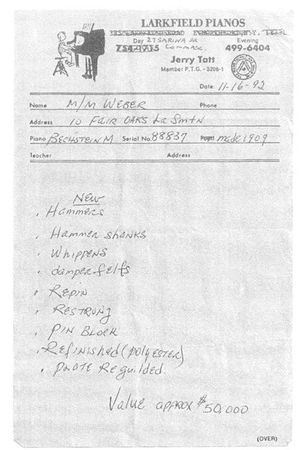 LARKFIELD PIANOS
Day 27 SARINA DR Evening
COMMACK 499-6404
Jerry Tatt
Member P.T.G. - 5206-1
Date 11-16-92
Name M/M WEBER Phone
Address 10 FAIR OAKS LA SMTN
Piano BECHSTEIN M Serial No. 88837 made 1909
Teacher Address
NEW
. Hammers
. Hammer shanks
. Whippens
. damper felts
. Repin
. RESTRUNG
. PIN BLOCK
. Refinished (polyESTER)
. PLATE Reguilded.
Value approx $50,000
(OVER)